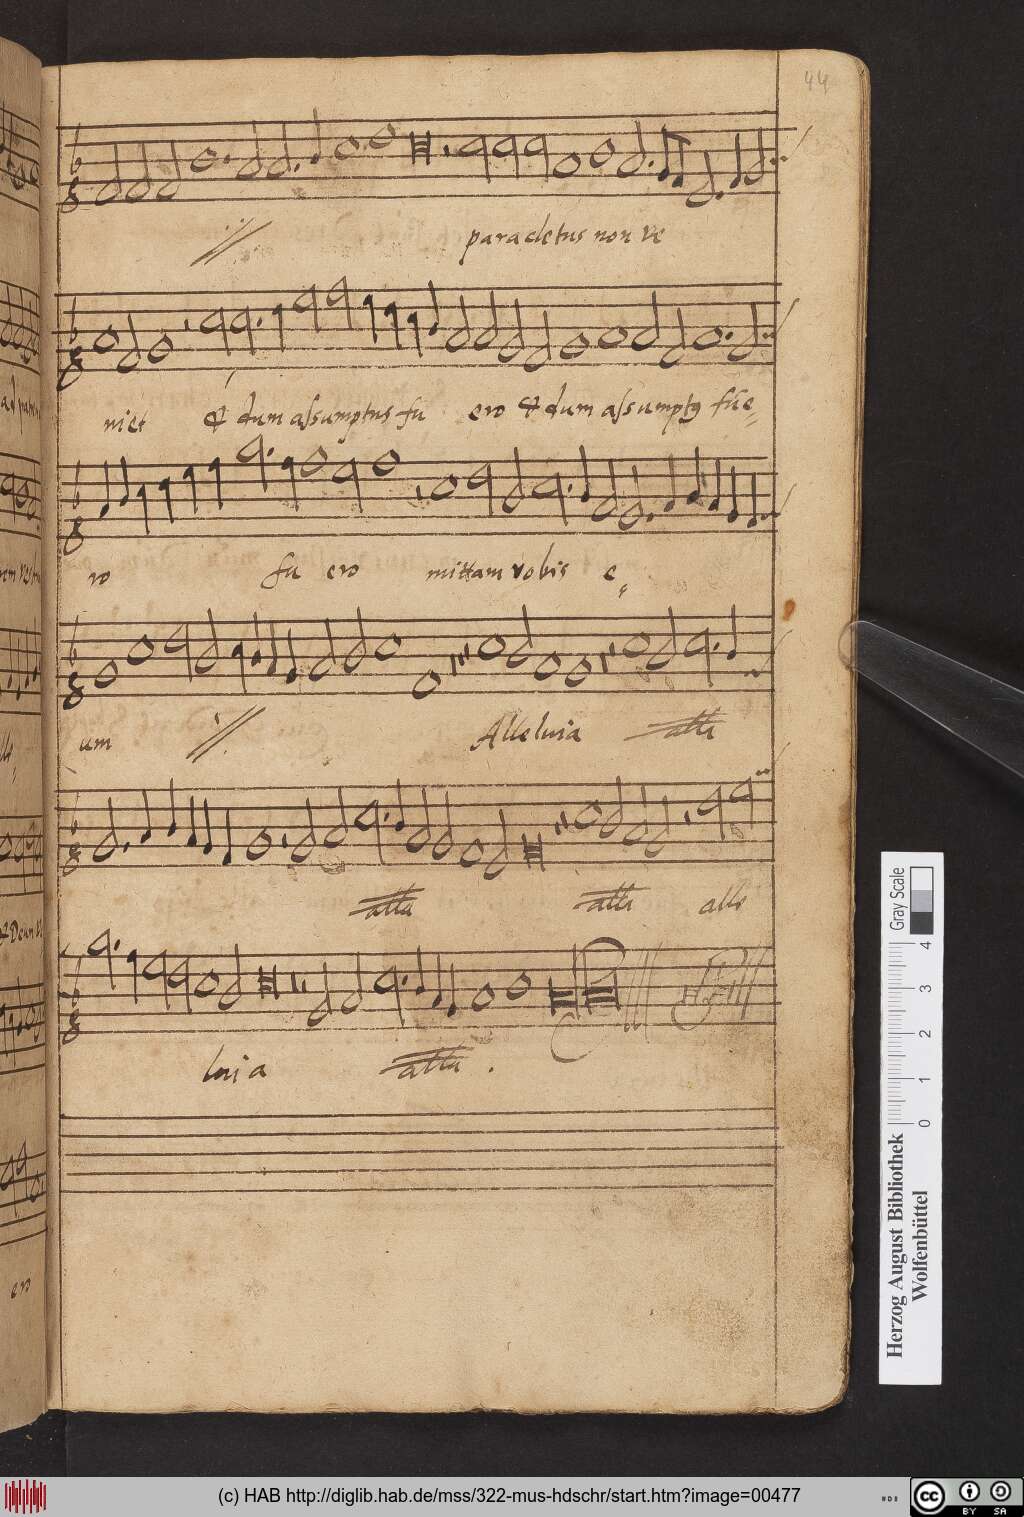 44
paracletus non ve
niet & dum assumptus fu ero & dum assumptg fue
ro fu ero mittam vobis e
um Alleluia alla
alla alla alle
luia alla .
Gray Scale
0 1 2 3 4
Herzog August Bibliothek
Wolfenbüttel
(c) HAB http://diglib.hab.de/mss/322-mus-hdschr/start.htm?image=00477
cc BY SA